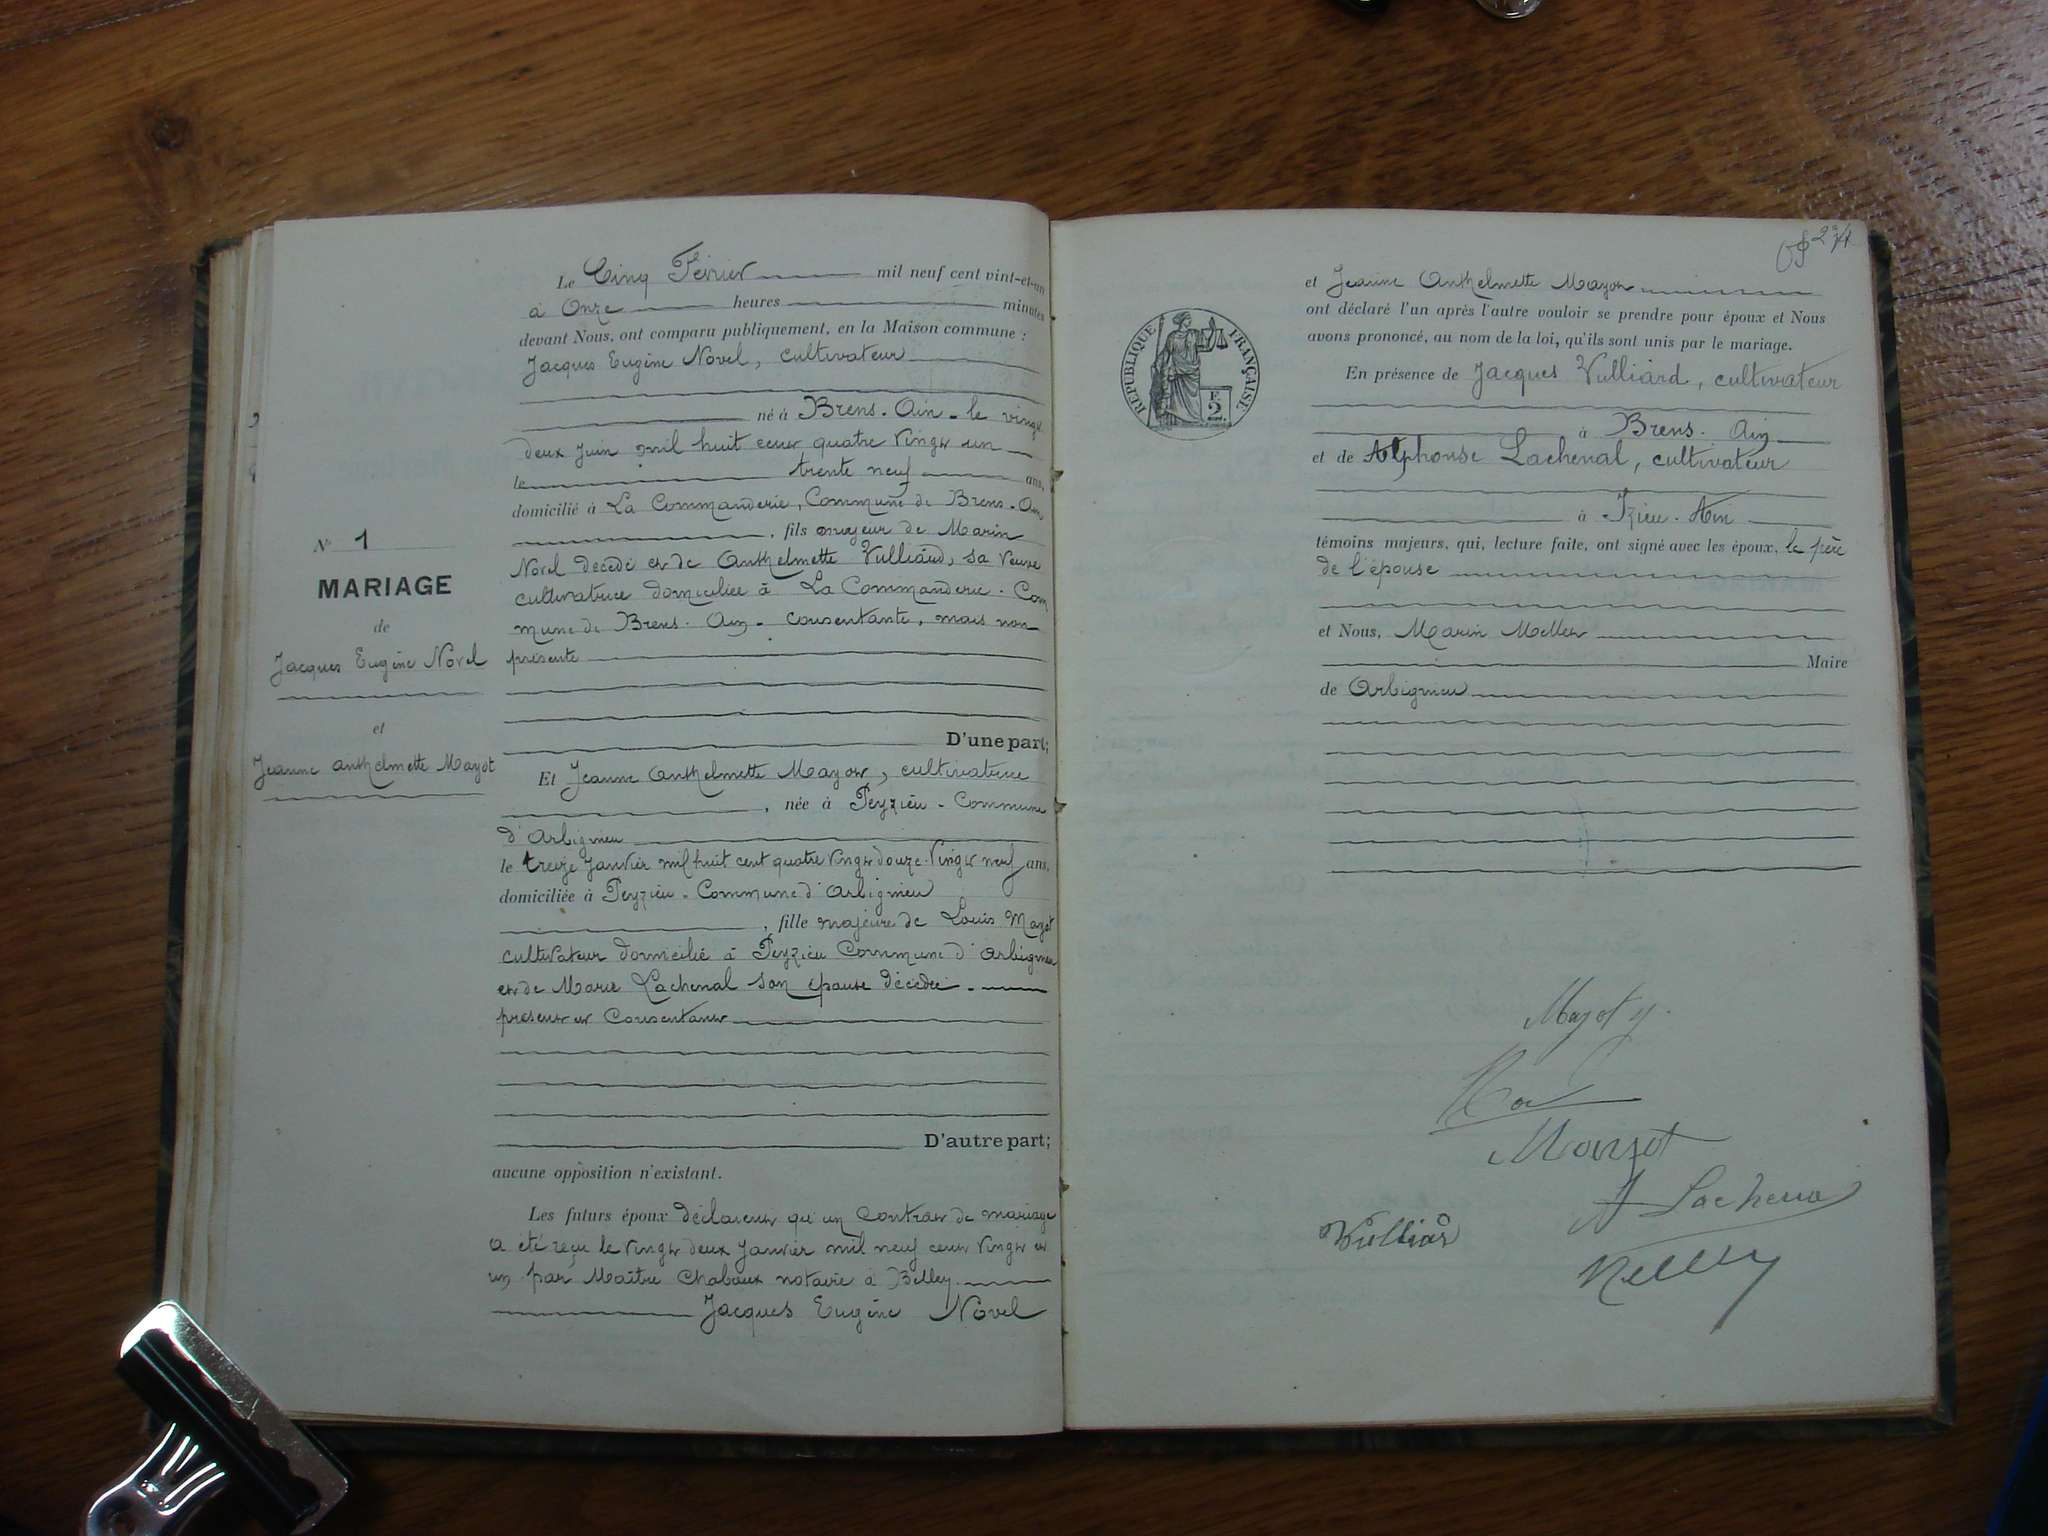 Le Cinq Février mil neuf cent vint-et-un
à Onze heures minutes
devant Nous, ont comparu publiquement, en la Maison commune :
Jacques Eugène Novel, cultivateur
né à Brens. Ain - le vingt
deux Juin mil huit cent quatre vingt un
le trente neuf ans,
domicilié à La Commanderie, Commune de Brens. Ain
, fils majeur de Marin
Novel décédé et de Anthelmette Vulliard, sa veuve
cultivatrice domiciliée à La Commanderie. Com
mune de Brens. Ain - consentante, mais non
présente
D'une part;
Et Jeanne Anthelmette Mayot, cultivatrice
, née à Peyzieu - Commune
d'Arbignieu
le treize Janvier mil huit cent quatre vingt douze. Vingt neuf ans,
domiciliée à Peyzieu - Commune d'Arbignieu
, fille majeure de Louis Mayot
cultivateur domicilié à Peyzieu Commune d'Arbignieu
et de Marie Lachenal son épouse décédée.
présent et Consentant
D'autre part;
aucune opposition n'existant.
Les futurs époux déclarent qu'un Contrat de mariage
a été reçu le vingt deux Janvier mil neuf cent vingt et
un par Maître Chabaux notaire à Belley.
Jacques Eugène Novel
N° 1
MARIAGE
de
Jacques Eugène Novel
et
Jeanne Anthelmette Mayot
274
RÉPUBLIQUE FRANÇAISE
2
et Jeanne Anthelmette Mayot
ont déclaré l'un après l'autre vouloir se prendre pour époux et Nous
avons prononcé, au nom de la loi, qu'ils sont unis par le mariage.
En présence de Jacques Vulliard, cultivateur
à Brens. Ain
et de Alphonse Lachenal, cultivateur
à Izieu. Ain
témoins majeurs, qui, lecture faite, ont signé avec les époux, le père
de l'épouse
et Nous, Marin Mellet
Maire
de Arbignieu
Mayot
Mayot
Lachena
Vulliard